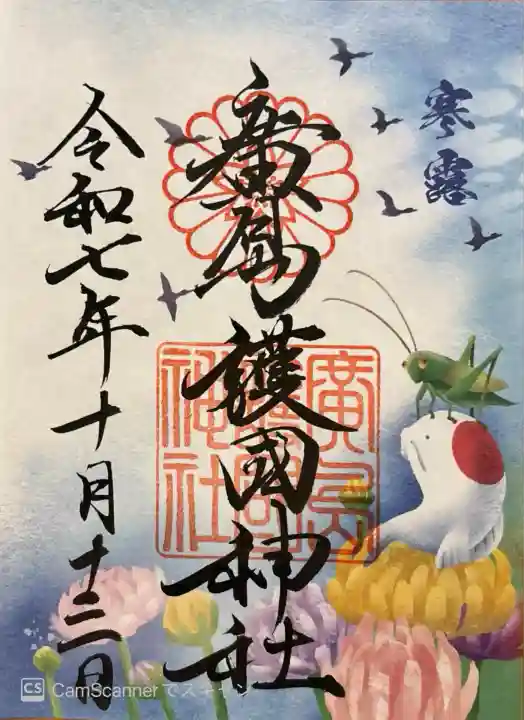 寒露
廣島護國神社
廣島
護國
神社
令和七年十月十三日
CS CamScannerでスキャン